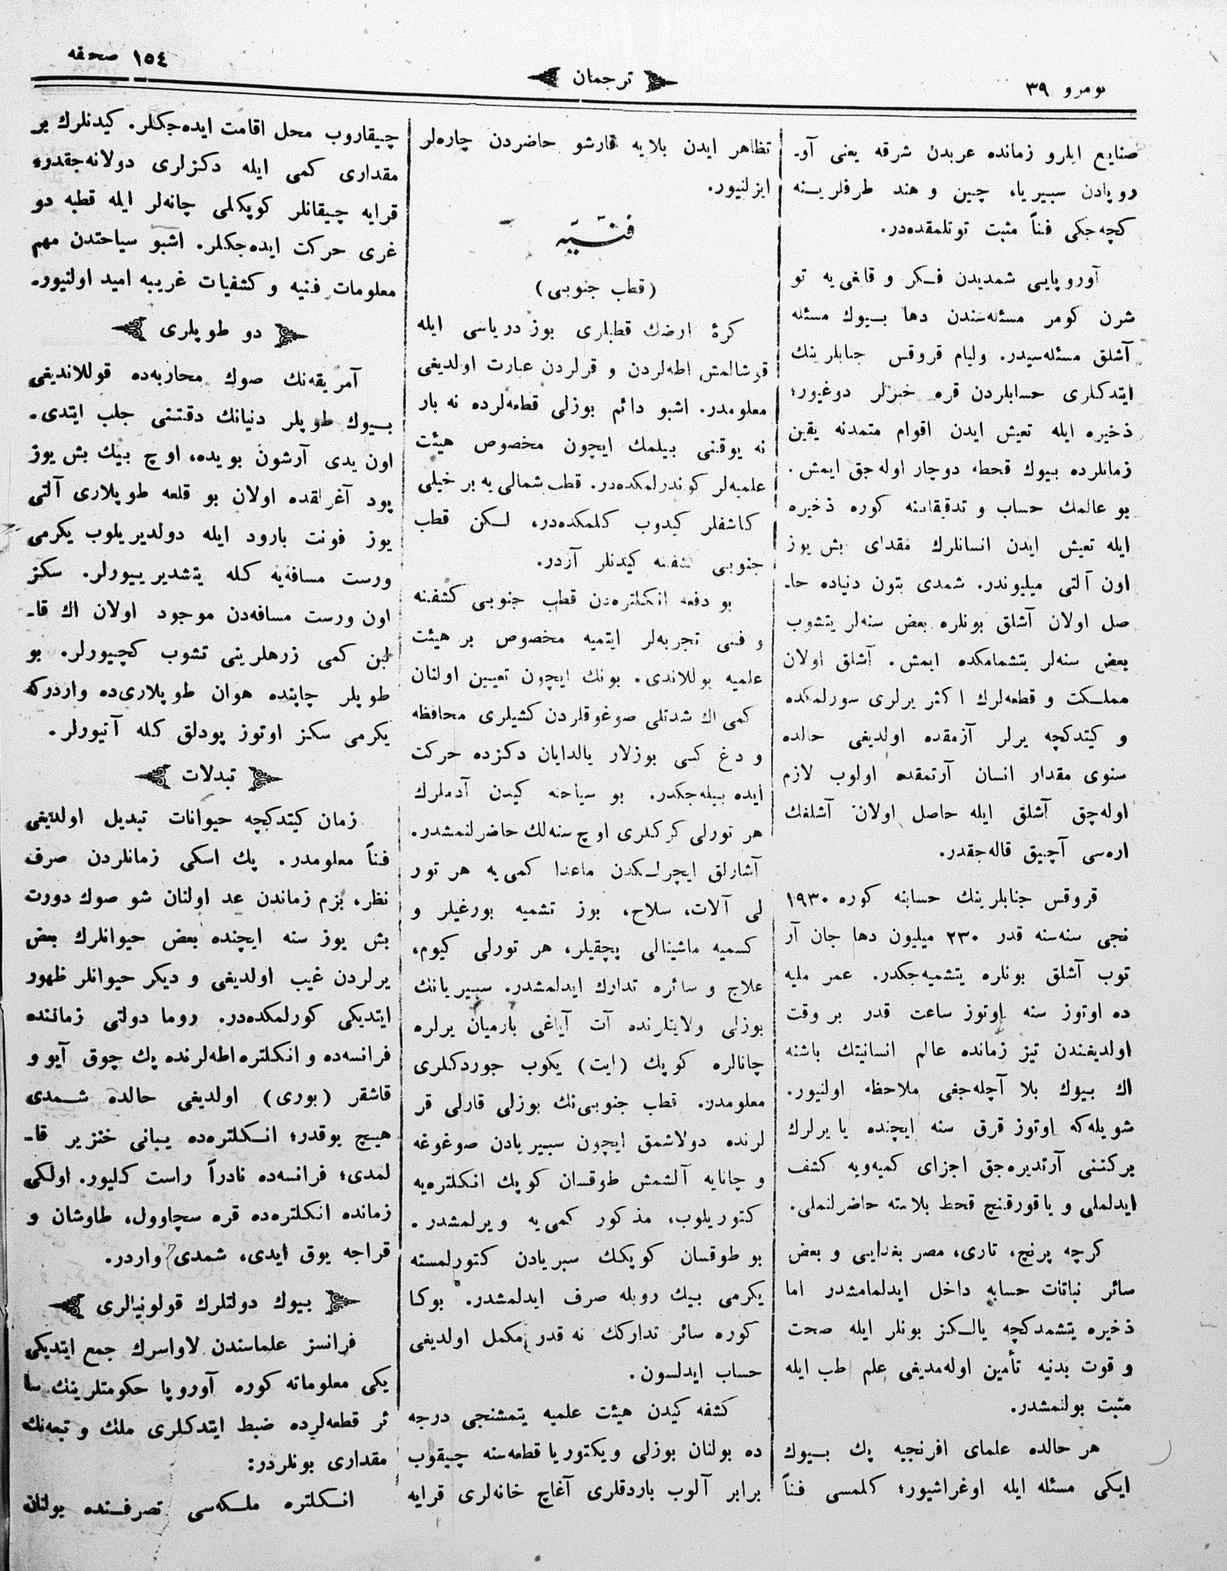 نومرو ٣٩
ترجمان
١٥٤ صحفه
صنايع ايلرو زمانده عربدن شرقه يعنى آو-
روپادن سيبيريا، چين و هند طرفلرينه
كچه‌جكى فناً مثبت توتلمقده‌در.
آوروپايى شمديدن فكر و قاغى‌يه تو
شرن كومر مسئله‌سندن دها بيوك مسئله
آشلق مسئله‌سيدر. وليام قروقس جنابلرينك
ايتدكلرى حسابلردن قره خبرلر دوغيور؛
ذخيره ايله تعيش ايدن اقوام متمدنه يقين
زمانلرده بيوك قحطه دوچار اوله‌جق ايمش.
بو عالمك حساب و تدقيقاتنه كوره ذخيره
ايله تعيش ايدن انسانلرك مقداى بش يوز
اون آلتى ميليوندر. شمدى بتون دنياده حا-
صل اولان آشلق بونلره بعض سنه‌لر يتشوب
بعض سنه‌لر يتشمامكده ايمش. آشلق اولان
مملكت و قطعه‌لرك اكثر يرلرى سورلمكده
و كيتدكچه يرلر آزمقده اولديغى حالده
سنوى مقدار انسان آرتمقده اولوب لازم
اوله‌چق آشلق ايله حاصل اولان آشلغك
اره‌سى آچيق قاله‌جقدر.
قروقس جنابلرينك حسابنه كوره ١٩٣٠
نجى سنه‌سنه قدر ٢٣٠ ميليون دها جان آر
توب آشلق بونلره يتشميه‌جكدر. عمر مليه
ده اوتوز سنه اوتوز ساعت قدر بر وقت
اولديغندن تيز زمانده عالم انسانيتك باشنه
اك بيوك بلا آچله‌جغى ملاحظه اولنيور.
شويله‌كه اوتوز قرق سنه ايچنده يا يرلرك
بركتنى آرتديره‌جق اجزاى كميه‌ويه كشف
ايدلملى و ياقورقنچ قحط بلاسنه حاضرلنملى.
كرچه پرنچ، تارى، مصر بغدايى و بعض
سائر نباتات حسابه داخل ايدلمامشدر اما
ذخيره يتشمدكچه يالكز بونلر ايله صحت
و قوت بدنيه تأمين اوله‌مديغى علم طب ايله
مثبت بولنمشدر.
هر حالده علماى افرنجيه پك بيوك
ايكى مسئله ايله اوغراشيور؛ كلمسى فناً
تظاهر ايدن بلايه قارشو حاضردن چاره‌لر
ايزلنيور.
فنيه
(قطب جنوبى)
كرۀ ارضك قطبلرى بوز درياسى ايله
قرشالمش اطه‌لردن و قرلردن عبارت اولديغى
معلومدر. اشبو دائم بوزلى قطعه‌لرده نه بار
نه يوقنى بيلمك ايچون مخصوص هيئت
علميه‌لر كوندرلمكده‌در. قطب شمالى‌يه بر خيلى
كاشفلر كيدوب كلمكده‌در، لكن قطب
جنوبى كشفنه كيدنلر آزدر.
بو دفعه انكلتره‌دن قطب جنوبى كشفنه
و فنى تجربه‌لر ايتميه مخصوص بر هيئت
علميه يوللاندى. بونك ايچون تعيين اولنان
كمى اك شدتلى صوغوقلردن كشيلرى محافظه
و دغ كبى بوزلار يالدايان دكزده حركت
ايده بيله‌جكدر. بو سياحته كيدن آدملرك
هر تورلى كركلرى اوچ سنه‌لك حاضرلنمشدر.
آشارلق ايچرلكدن ماعدا كمى‌يه هر تور
لى آلات، سلاح، بوز تشميه بورغيلر و
كسميه ماشينالى پچقيلر، هر تورلى كيوم،
علاج و سائره تدارك ايدلمشدر. سيبيريانك
بوزلى ولايتلرنده آت آياغى بارميان يرلره
چانالره كوپك (ايت) يكوب جوردكلرى
معلومدر. قطب جنوبى‌نك بوزلى قارلى قر
لرنده دولاشمق ايچون سيبيريادن صوغوغه
و چانايه آلشمش طوقسان كوپك انكلتره‌يه
كتوريلوب، مذكور كمى‌يه ويرلمشدر.
بو طوقسان كوپكك سبريادن كتورلمسنه
يكرمى بيك روبله صرف ايدلمشدر. بوكا
كوره سائر تداركك نه قدر مكمل اولديغى
حساب ايدلسون.
كشفه كيدن هيئت علميه يتمشنجى درجه
ده بولنان بوزلى ويكتوريا قطعه‌سنه چيقوب
برابر آلوب باردقلرى آغاچ خانه‌لرى قرايه
چيقاروب محل اقامت ايده‌جكلر. كيدنلرك بر
مقدارى كمى ايله دكزلرى دولانه‌جقدر؛
قرايه چيقانلر كوپكلى چانه‌لر ايله قطبه دو
غرى حركت ايده‌جكلر. اشبو سياحتدن مهم
معلومات فنيه و كشفيات غريبه اميد اولنيور.
دو طوپلرى
آمريقه‌نك صوك محاربه‌ده قوللانديغى
بيوك طوپلر دنيانك دقتنى جلب ايتدى.
اون يدى آرشون بويده، اوچ بيك بش يوز
پود آغرلقده اولان بو قلعه طوپلارى آلتى
يوز فونت بارود ايله دولديريلوب يكرمى
ورست مسافه‌يه كله يتشديرييورلر. سكز
اون ورست مسافه‌دن موجود اولان اك قا-
لبن كمى زرهلرينى تشوب كچيورلر. بو
طوپلر چاپنده هوان طوپلارى‌ده واردركه
يكرمى سكز اوتوز پودلق كله آتيورلر.
تبدلات
زمان كيتدكچه حيوانات تبديل اولديغى
فناً معلومدر. پك اسكى زمانلردن صرف
نظر، بزم زماندن عد اولنان شو صوك دورت
بش يوز سنه ايچنده بعض حيوانلرك بعض
يرلردن غيب اولديغى و ديكر حيوانلر ظهور
ايتديكى كورلمكده‌در. روما دولتى زماننده
فرانسه‌ده و انكلتره اطه‌لرنده پك چوق آيو و
قاشقر (بورى) اولديغى حالده شمدى
هيچ يوقدر؛ انكلتره‌ده يبانى خنزير قا-
لمدى؛ فرانسه‌ده نادراً راست كليور. اولكى
زمانده انكلتره‌ده قره سچاوول، طاوشان و
قراجه يوق ايدى، شمدى واردر.
بيوك دولتلرك قولونيالرى
فرانسز علماسندن لاواسرك جمع ايتديكى
يكى معلوماته كوره آوروپا حكومتلرينك سا
ئر قطعه‌لرده ضبط ايتدكلرى ملك و تبعه‌نك
مقدارى بونلردر:
انكلتره ملكه‌سى تصرفنده بولنان